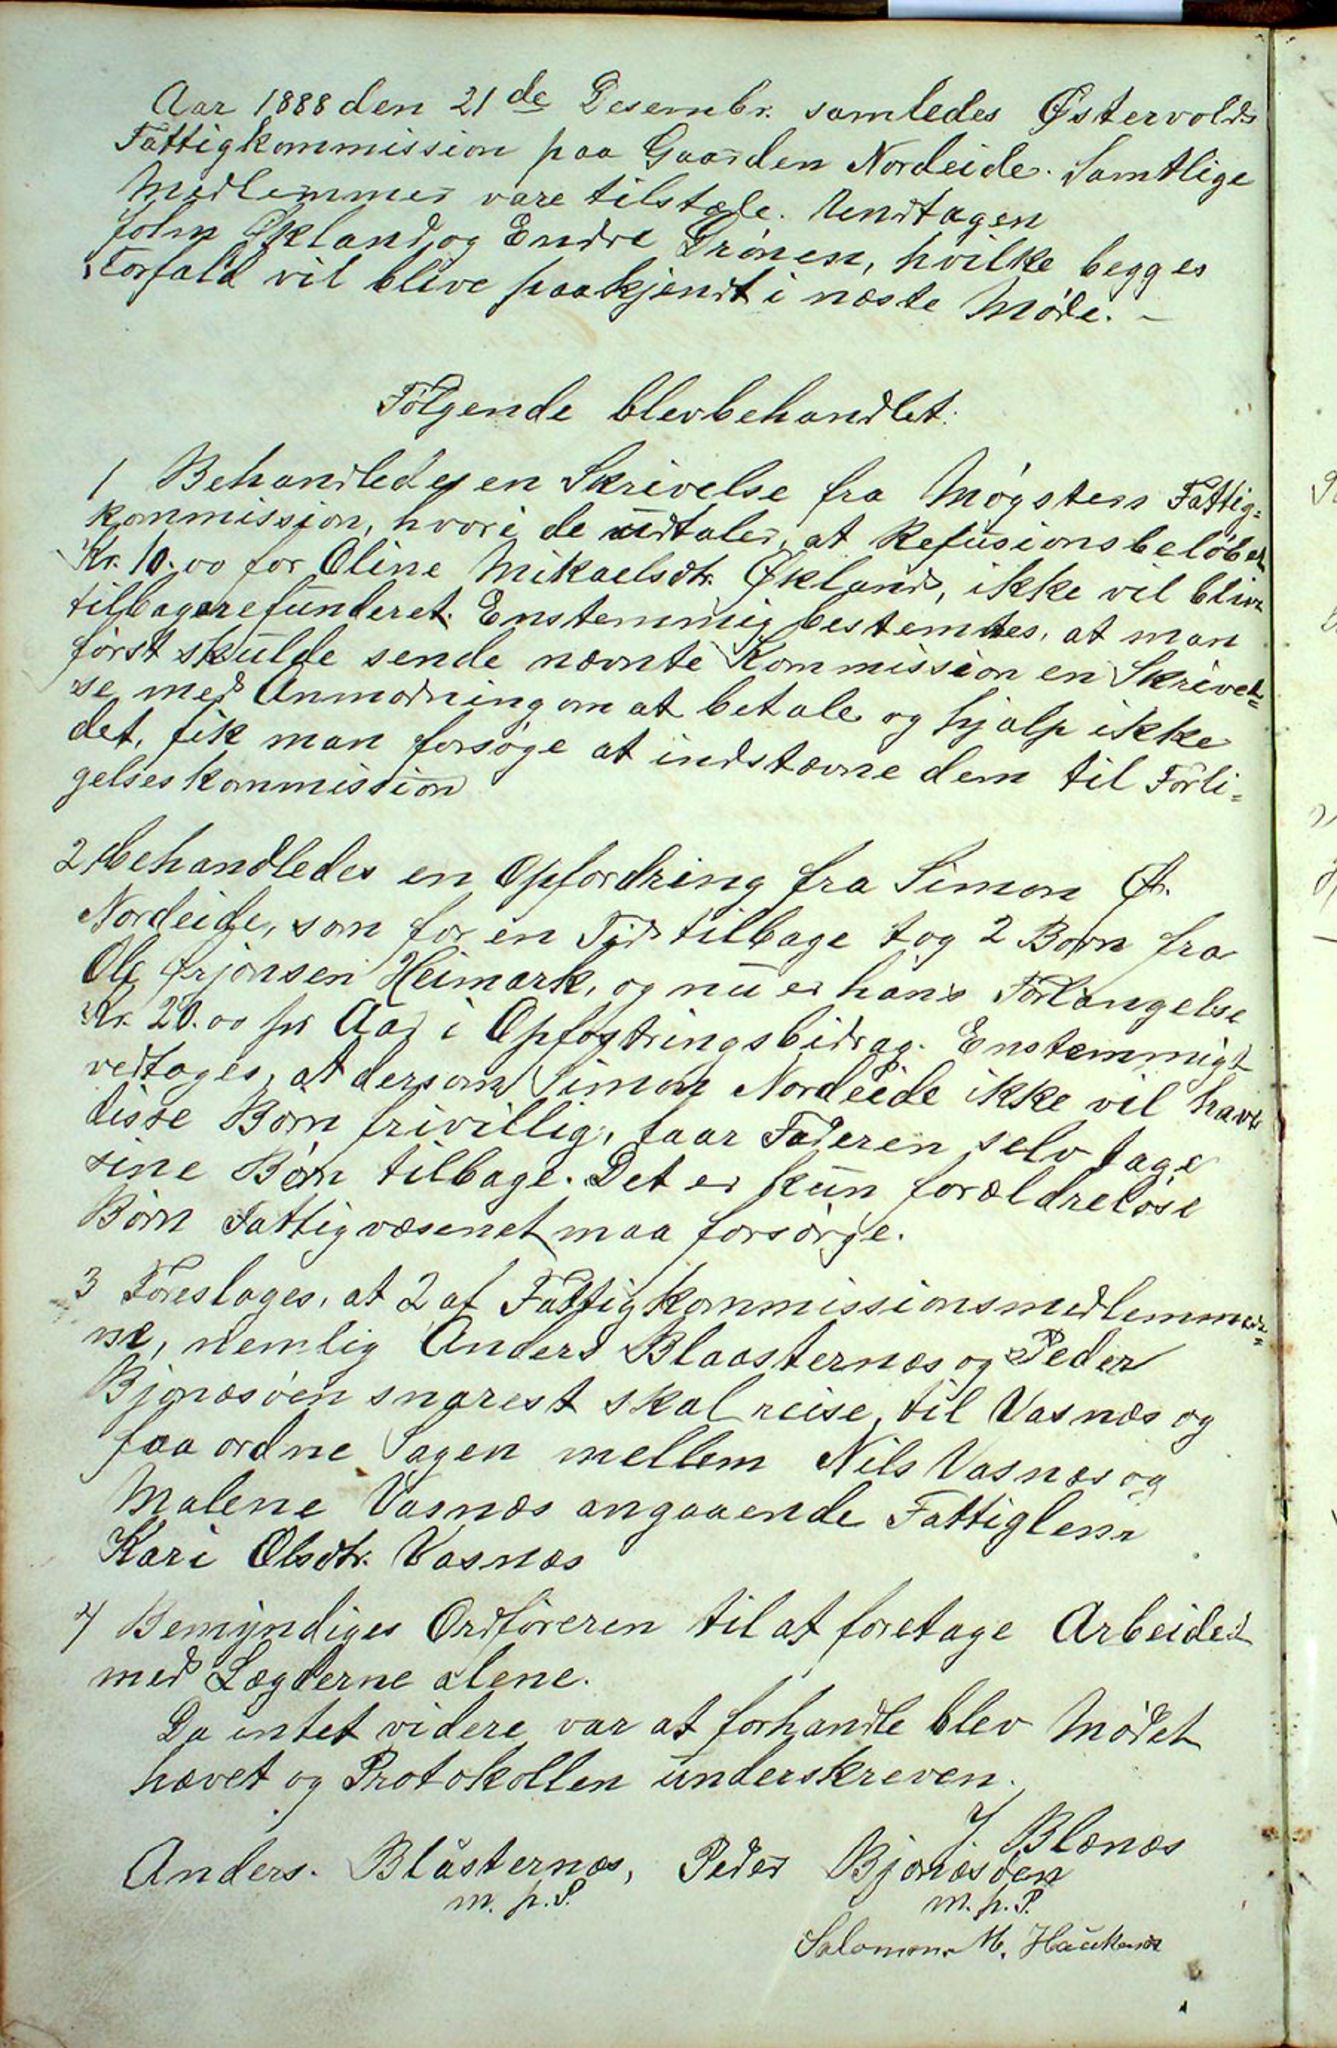 Aar 1888 den 21de Desembr. samledes Østervolds
Fattigkommission paa Gaarden Nordeide. Samtlige
Medlemmer vare tilstæde. Undtagen
John Økland og Endre Grønen, hvilke begges
Forfald vil blive paakjendt i næste Møde. –
Følgende blev behandlet:
1 Behandledes en Skrivelse fra Møgsters Fattig=
kommission, hvori de udtaler, at Refusionsbeløbet
Kr. 10.00 for Oline Mikaelsdtr. Økland, ikke vil blive
tilbagerefunderet. Enstemmig bestemtes, at man
først skulde sende nævnte Kommission en Skrivel=
se med Anmodning om at betale og hjalp ikke
det, fik man forsøge at indstævne dem til Forli=
gelseskommission
2 behandledes en Opfordring fra Simon
Nordeide, som for en Tid tilbage tog 2 Børn fra
Ole Ørjansen Heimark, og nu er hans Forlangelse
Kr. 20.00 pr Aar i Opfostringsbidrag. Enstemmigt
vedtages, at dersom Simon Nordeide ikke vil have
disse Børn frivillig, faar Faderen selv tage
sine Børn tilbage. Det er kun forældreløse
Børn Fattigvæsenet maa forsørge.
3 Foreslages, at 2 af Fattigkommissionsmedlemmer=
ne, nemlig Anders Blaasternæs og Peder
Bjonæsøen snarest skal reise til Vasnæs og
faa ordne Sagen mellem Nils Vasnæs og
Malene Vasnæs angaaende Fattiglem
Kari Olsdtr. Vasnæs
4 Bemyndiges Ordføreren til at foretage Arbeidet
med Lægderne alene.
Da intet videre var at forhandle blev Mødet
hævet og Protokollen underskreven.
J. Blænæs
Anders. Blåsternæs, Peder Bjonæsøen
m. p. P. m. p. P.
Salomon M. Haukanæs